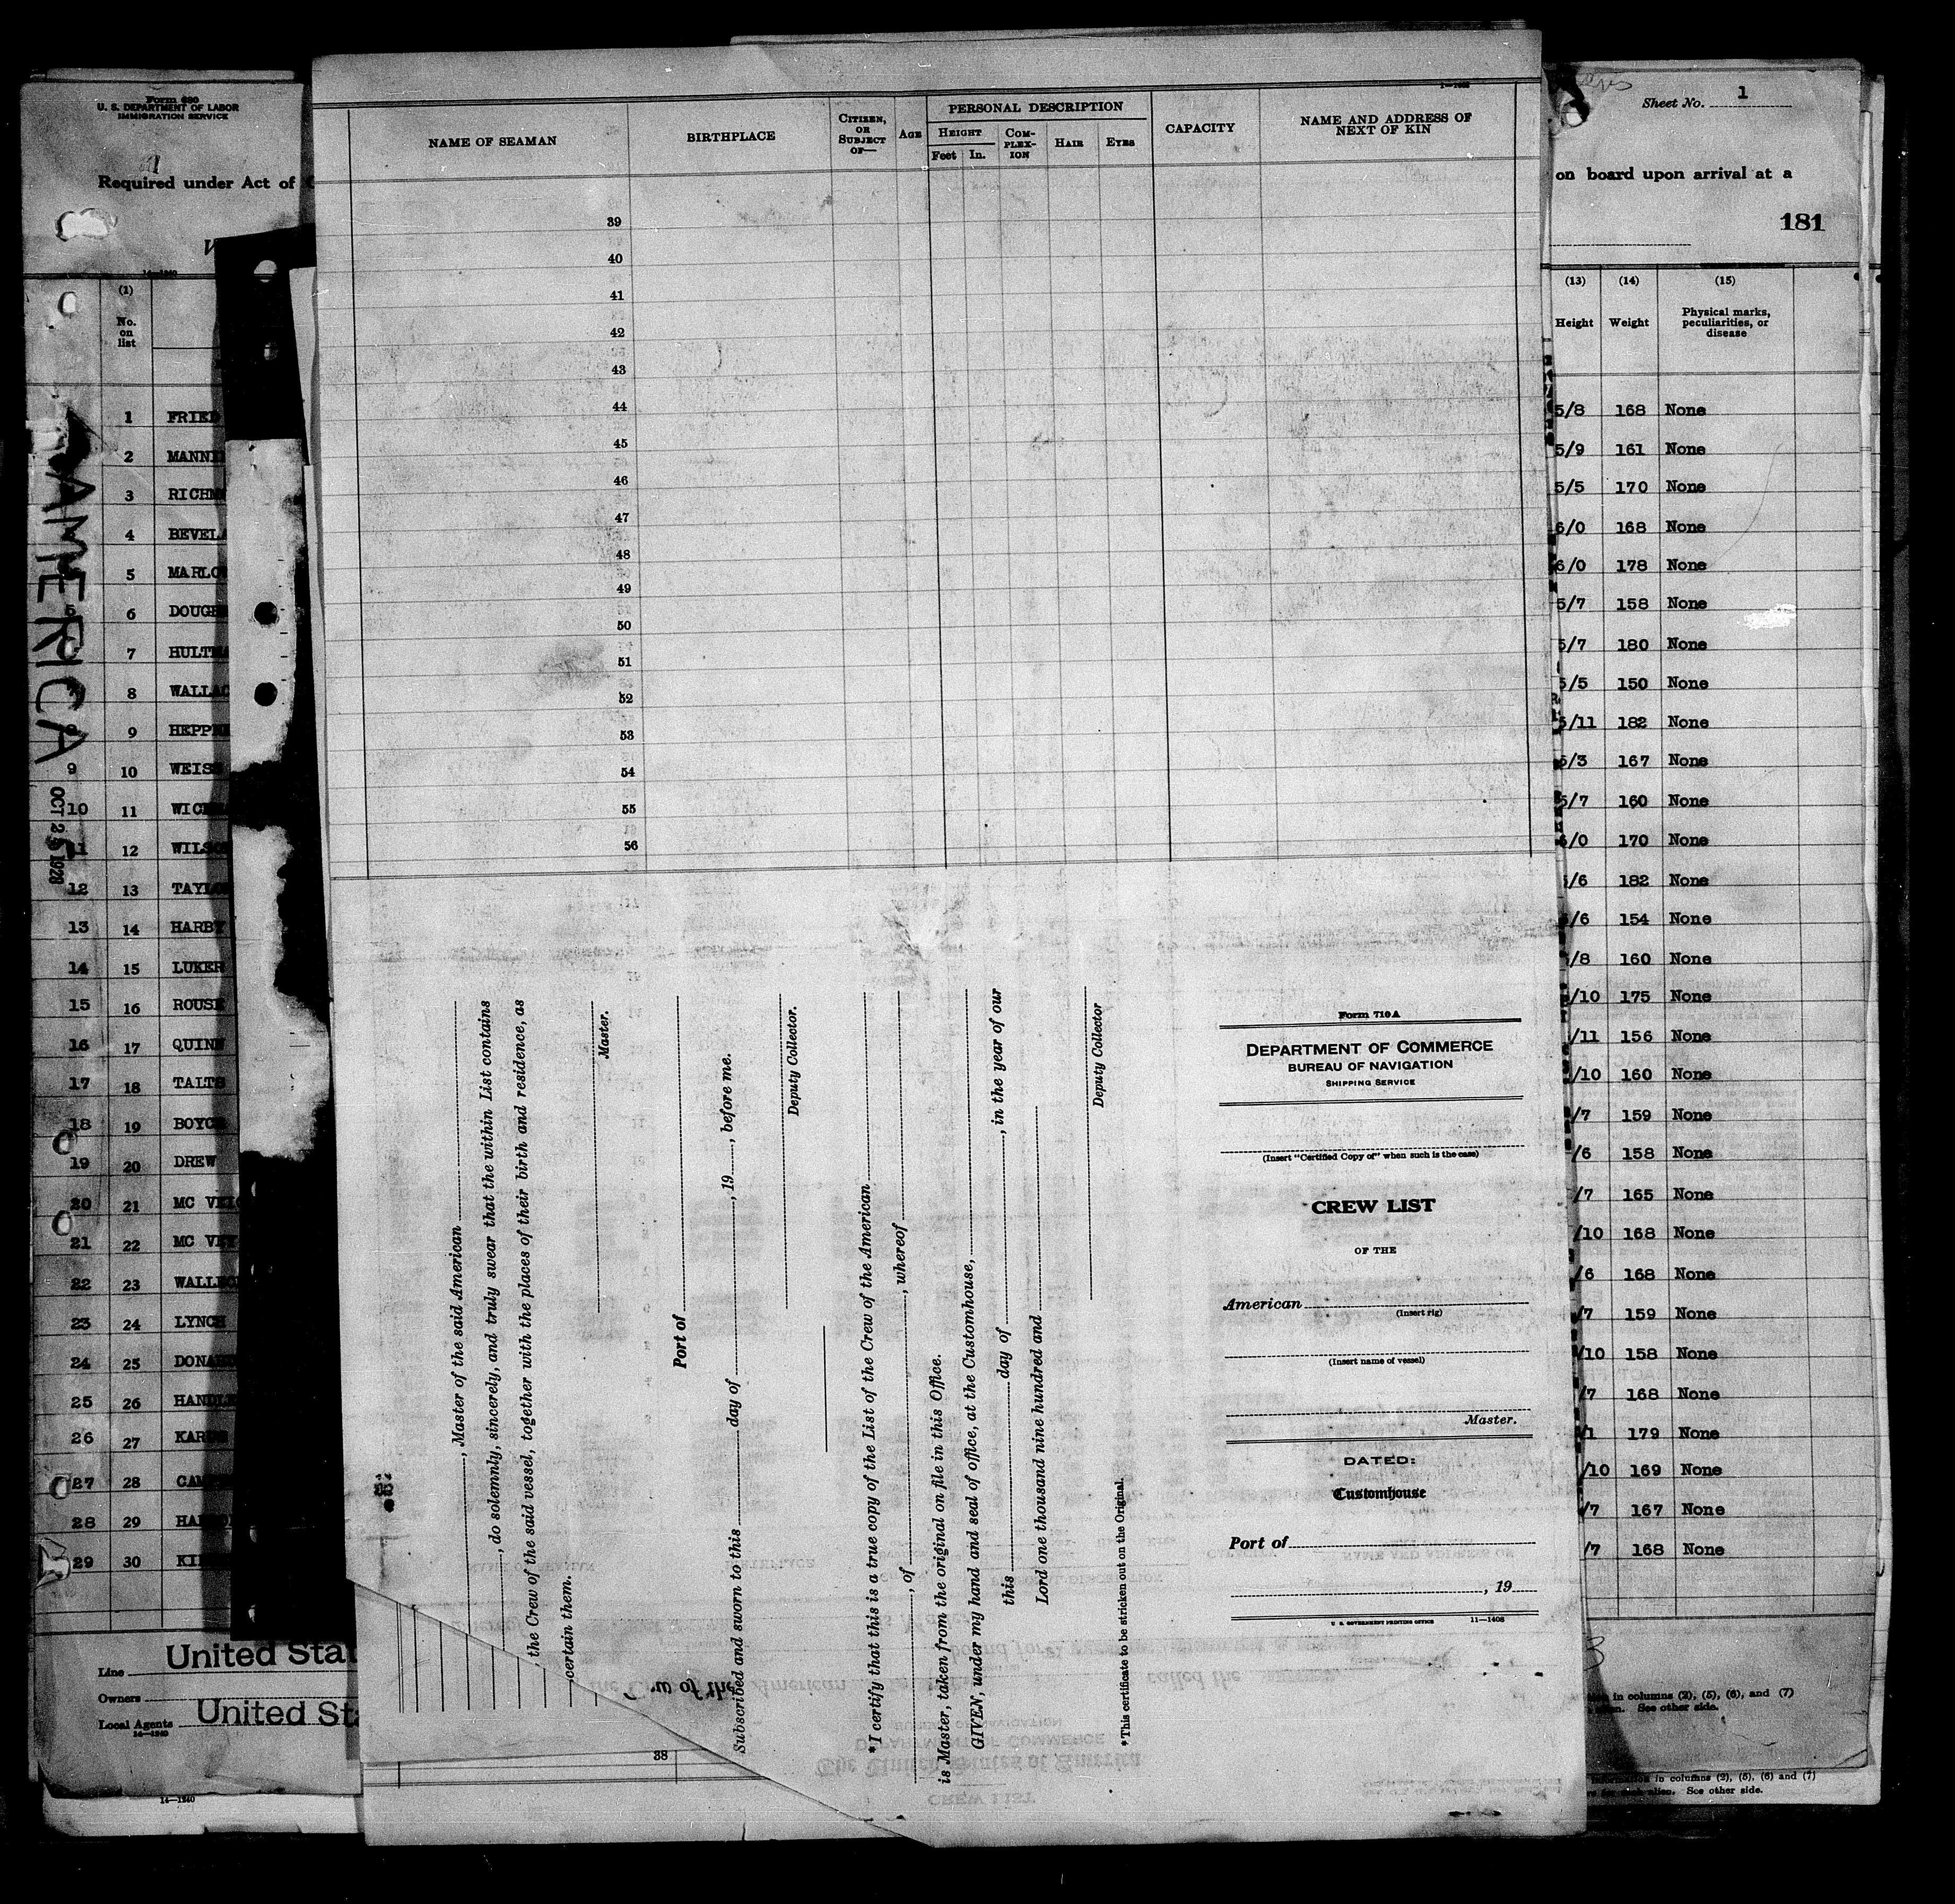 Form 680
U. S. DEPARTMENT OF LABOR
IMMIGRATION SERVICE
Required under Act of
14—1240
(1)
No.
on
list
1 FRIED
2 MANNI
3 RICHM
4 BEVELA
5 MARLOW
6 DOUGHE
7 HULTMA
8 WALLAC
9 HEPPNE
9 10 WEISS
10 11 WICK
11 12 WILSON
12 13 TAYLO
13 14 HARBY
14 15 LUKER
15 16 ROUSE
16 17 QUINN
17 18 TALTS
18 19 BOYCE
19 20 DREW
20 21 MC VEIG
21 22 MC VEY
22 23 WALLEC
23 24 LYNCH
24 25 DONA
25 26 HANDLE
26 27 KARUS
27 28 CAM
28 29 HA
29 30 KI
AMERICA
OCT 2 1928
Line United Stat
Owners
Local Agents United Sta
14—1240
14—1240
NAME OF SEAMAN
BIRTHPLACE
CITIZEN,
OR
SUBJECT
OF—
AGE
PERSONAL DESCRIPTION
HEIGHT
Feet In.
COM-
PLEX-
ION
HAIR
EYES
CAPACITY
NAME AND ADDRESS OF
NEXT OF KIN
39
40
41
42
43
44
45
46
47
48
49
50
51
52
53
54
55
56
, Master of the said American
, do solemnly, sincerely, and truly swear that the within List contains
, the Crew of the said vessel, together with the places of their birth and residence, as
certain them.
Master.
Port of
Subscribed and sworn to this day of , 19 , before me.
Deputy Collector.
*I certify that this is a true copy of the List of the Crew of the American
, of , whereof
is Master, taken from the original on file in this Office.
GIVEN, under my hand and seal of office, at the Customhouse,
this day of , in the year of our
Lord one thousand nine hundred and
Deputy Collector
*This certificate to be stricken out on the Original.
Form 710A
DEPARTMENT OF COMMERCE
BUREAU OF NAVIGATION
SHIPPING SERVICE
(Insert "Certified Copy of" when such is the case)
CREW LIST
OF THE
American
(Insert rig)
(Insert name of vessel)
Master.
DATED:
Customhouse
Port of
, 19
U. S. GOVERNMENT PRINTING OFFICE 11—1408
38
Sheet No. 1
on board upon arrival at a
181
(13) (14) (15)
Height Weight Physical marks,
peculiarities, or
disease
5/8 168 None
5/9 161 None
5/5 170 None
6/0 168 None
6/0 178 None
5/7 158 None
5/7 180 None
5/5 150 None
5/11 182 None
5/3 167 None
5/7 160 None
6/0 170 None
/6 182 None
/6 154 None
/8 160 None
/10 175 None
/11 156 None
/10 160 None
/7 159 None
/6 158 None
/7 165 None
/10 168 None
/6 168 None
/7 159 None
/10 158 None
/7 168 None
/1 179 None
/10 169 None
/7 167 None
/7 168 None
3
in columns (2), (5), (6), and (7)
See other side.
information in columns (2), (5), (6) and (7)
See other side.